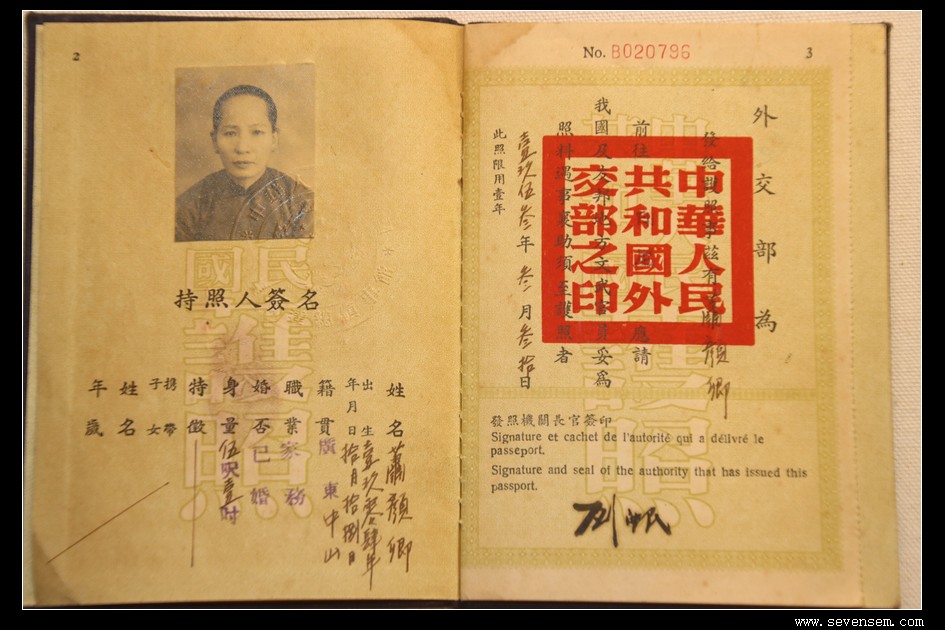 2
持照人簽名
姓名 蕭顏卿
出生年月日 壹玖零肆年拾月拾捌日
籍貫 廣東中山
職業 家務
婚否 已婚
身量 伍呎壹吋
特徵
携帶子女
姓名
年歲
No. B020796
3
外交部為
發給護照事茲有蕭顏卿
前往 應請
我國及友邦地方文武官員妥為
照料遇事襄助須至護照者
壹玖伍叁年叁月叁拾日
此照限用壹年
中華人民
共和國外
交部之印
發照機關長官簽印
Signature et cachet de l'autorité qui a délivré le
passeport.
Signature and seal of the authority that has issued this
passport.
www.sevensem.com